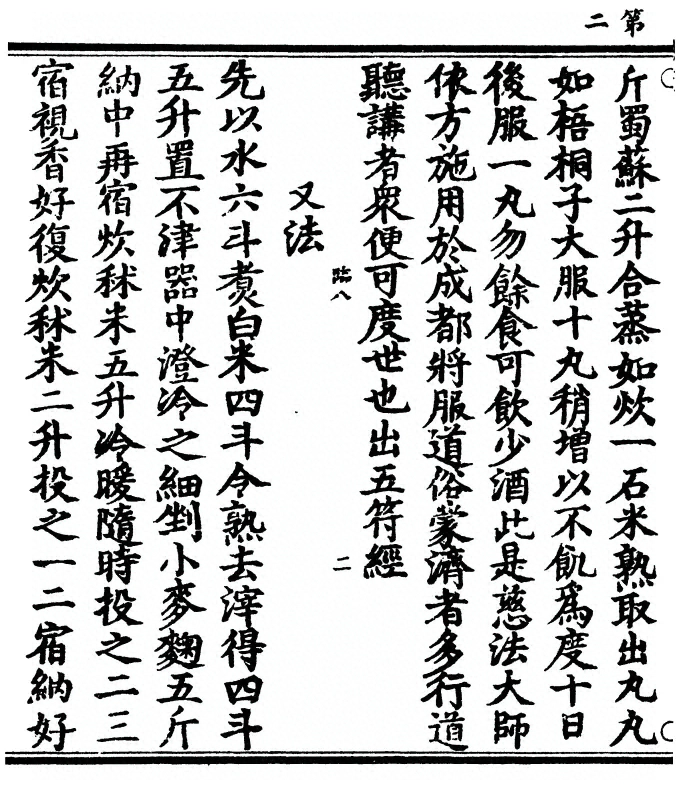 第二
斤蜀蘇二升合蒸如炊一石米熟取出丸丸
如梧桐子大服十丸稍增以不飢為度十日
後服一丸勿餘食可飲少酒此是慈法大師
依方施用於成都將服道俗蒙濟者多行道
聽講者衆便可度世也出五符經
臨八 二
又法
先以水六斗煑白米四斗令熟去滓得四斗
五升置不津器中澄冷之細剉小麥麴五斤
納中再宿炊秫米五升冷暖隨時投之二三
宿視香好復炊秫米二升投之一二宿納好